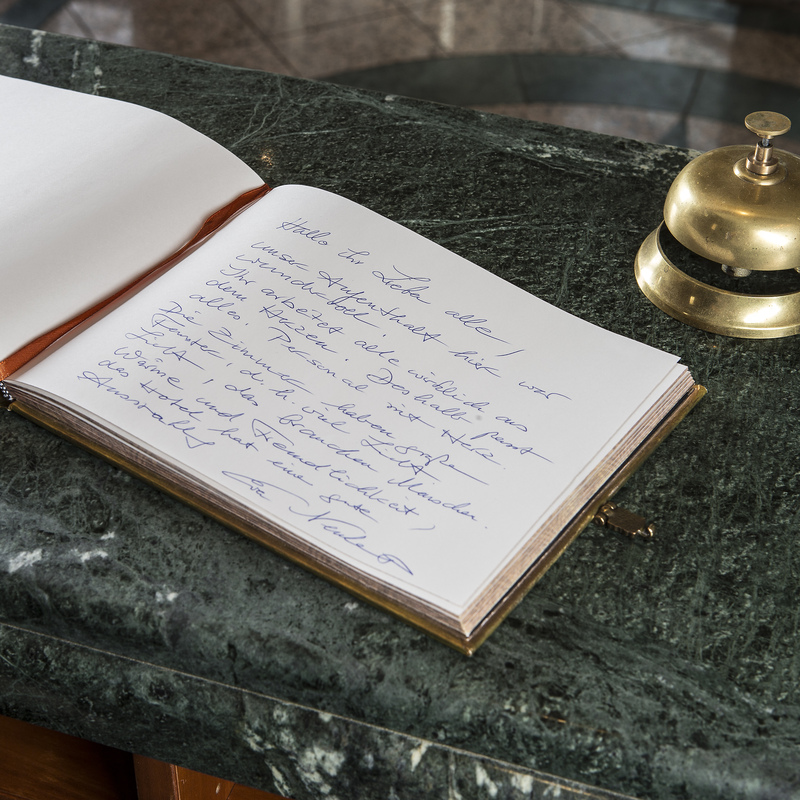 Hallo Ihr Lieben alle!
unser Aufenthalt hier war
wundervoll.
Ihr arbeitet alle wirklich aus
dem Herzen. Deshalb passt
alles. Personal mit Herz.
Die Zimmer haben große
Fenster, d.h. viel Licht.
Licht, das brauchen Menschen.
Wärme und Freundlichkeit,
das Hotel hat eine gute
Ausstrahlg
Eva